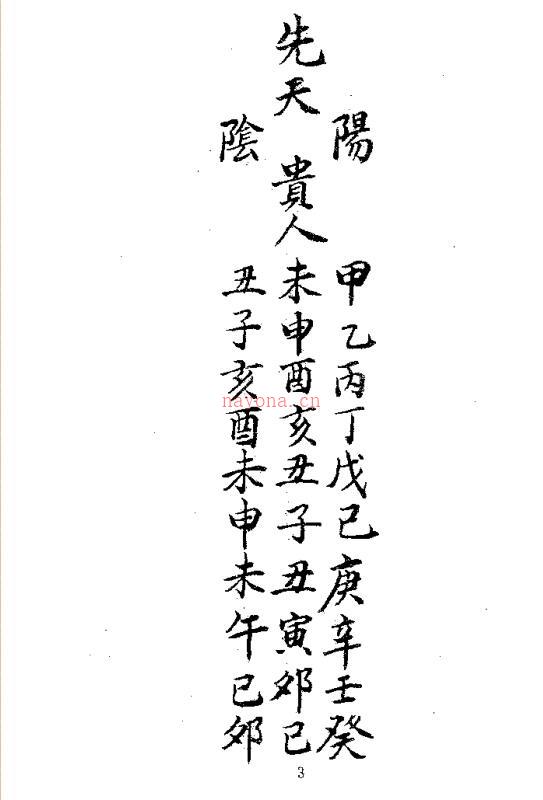 陽
甲乙丙丁戊己庚辛壬癸
先天貴人
未申酉亥丑子丑寅卯巳
陰
丑子亥酉未申未午巳卯
nayona.cn
3